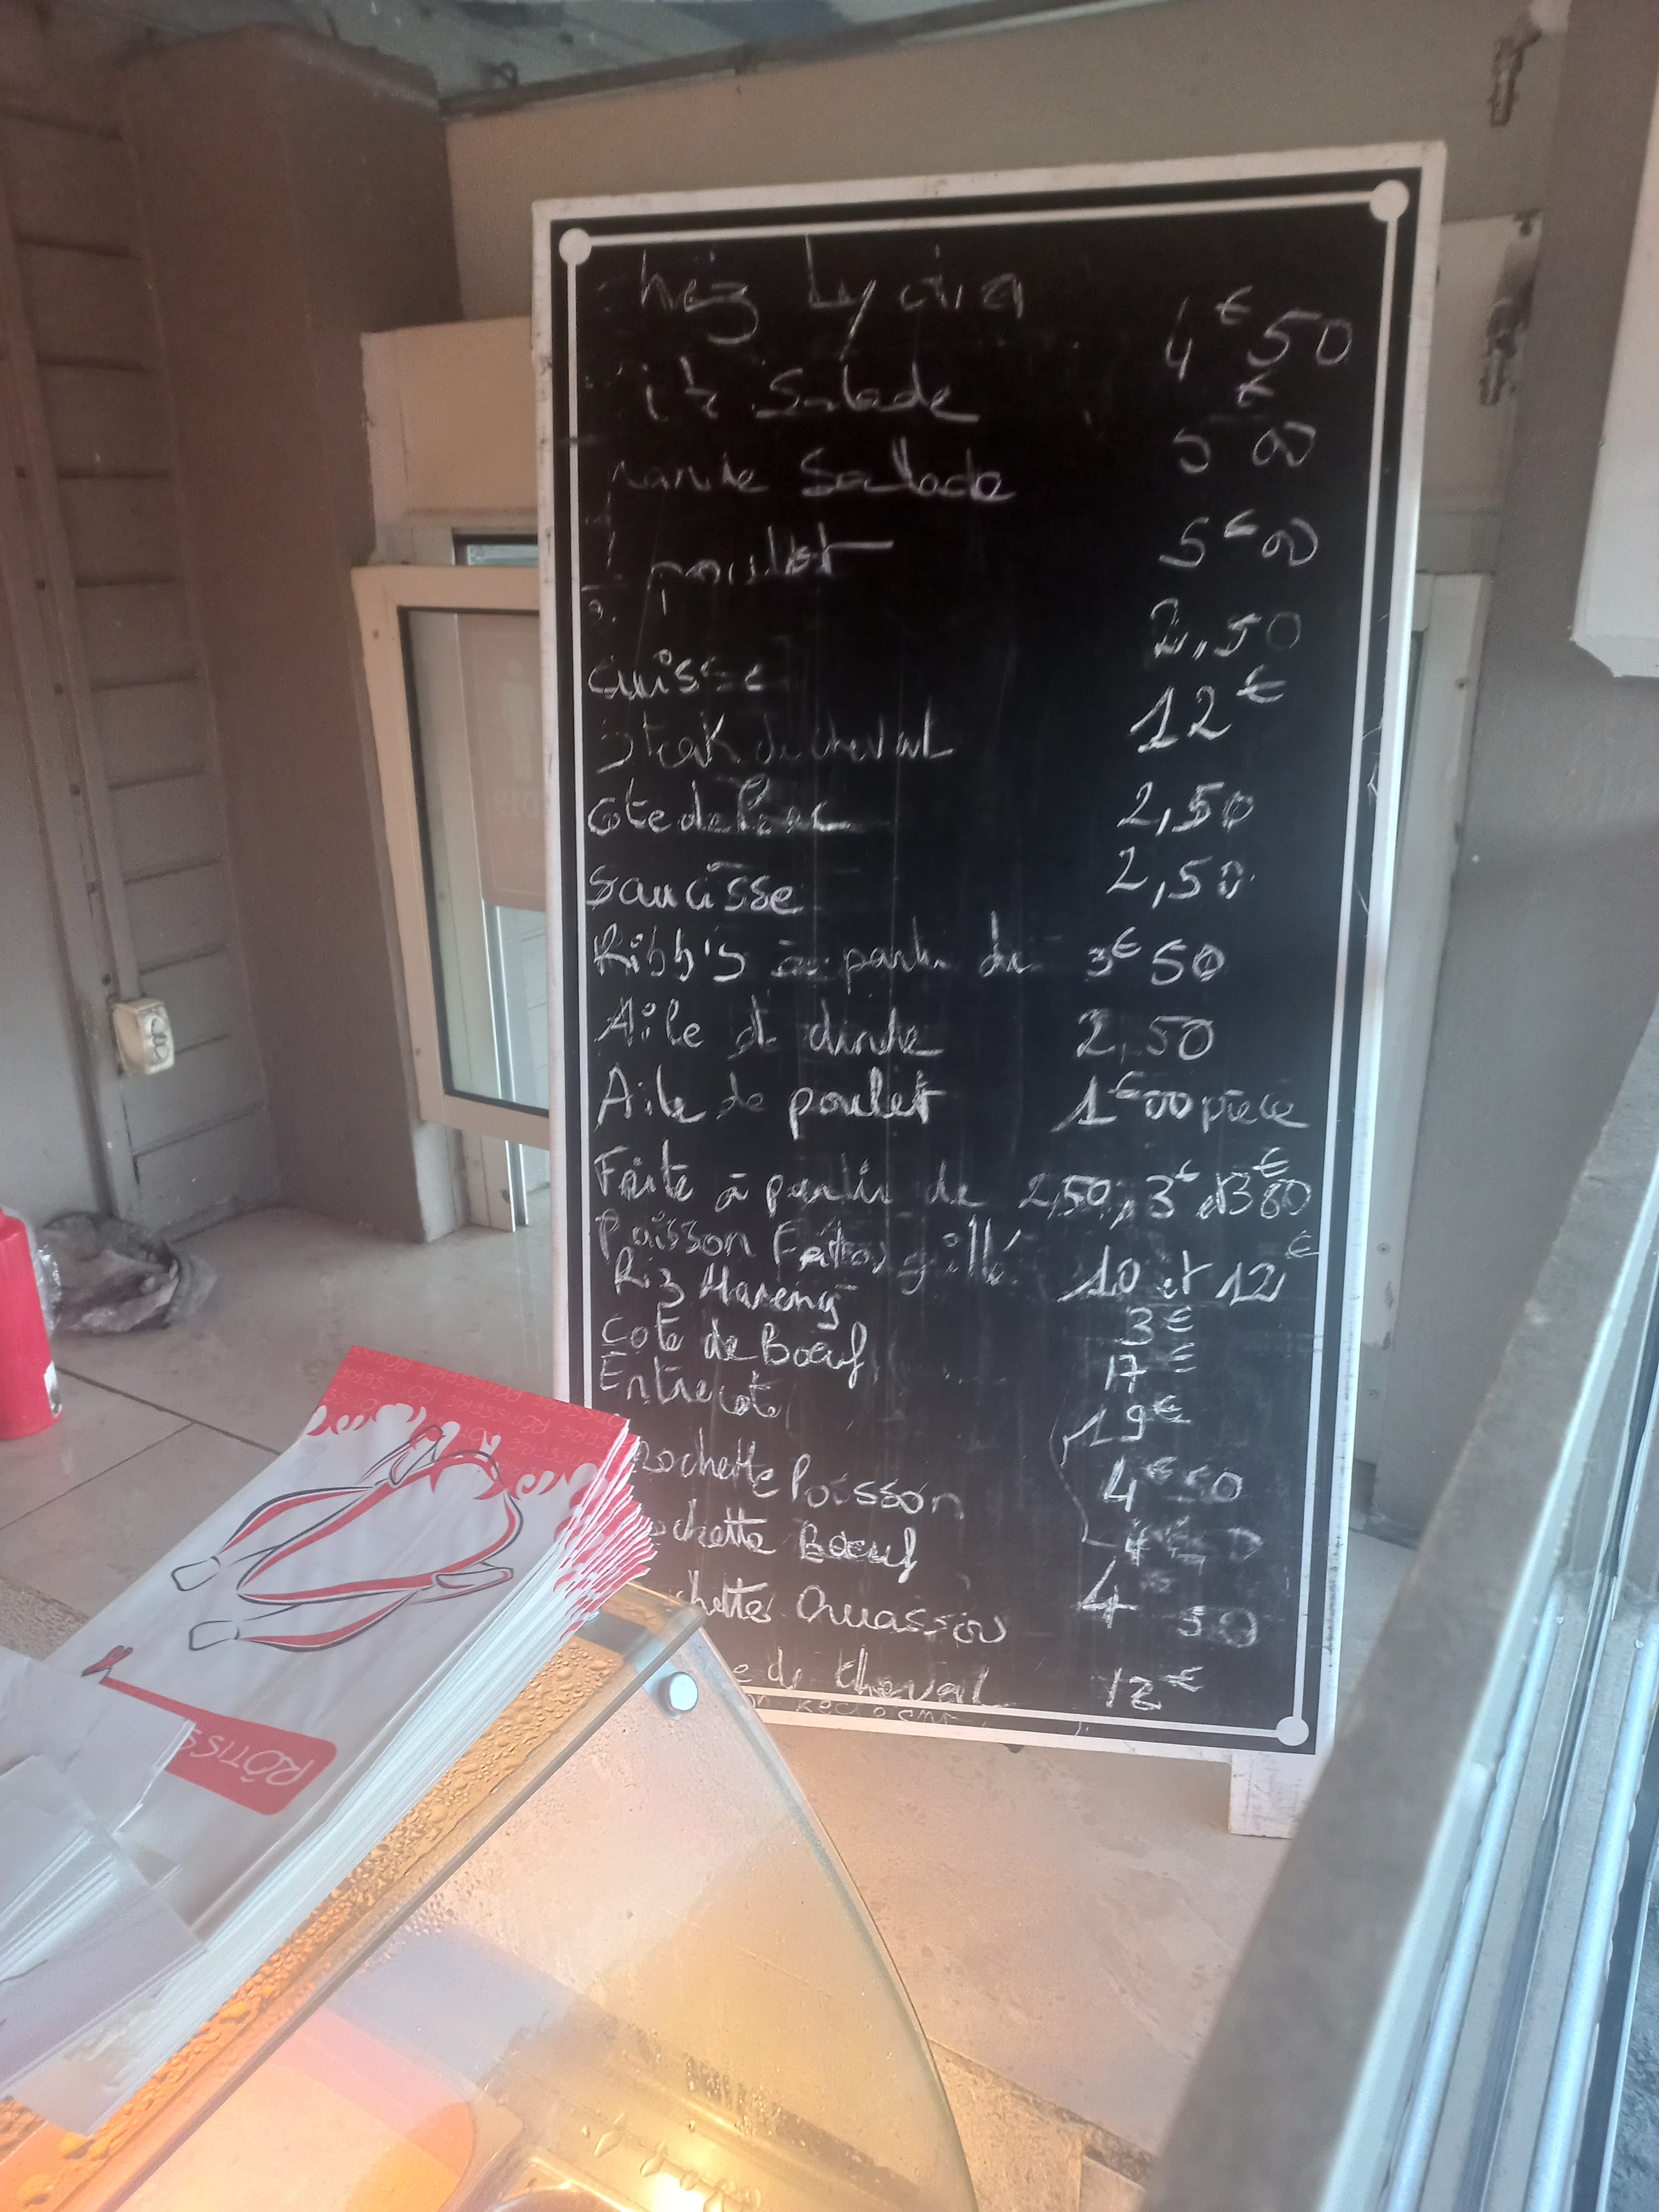 hez Lydia
4€50
it Salade
Salade
5€00
poulet
2,50
Cuisse
12€
Steak de cheval
Cote de Porc 2,50
Saucisse 2,50
Ribb's à partir de 3€50
Aile d dinde 2,50
Aile de poulet 1€00 pièce
Frite à partir de 2,50, 3€ et 3€80
Poisson grillé 10 et 12€
Riz Hareng 3€
Cote de Boeuf 17€
Entrecot 19€
rochette Poisson 4€50
ochette Boeuf
chettes Ouassou 4 50
e de Cheval 12€
RÔTISS